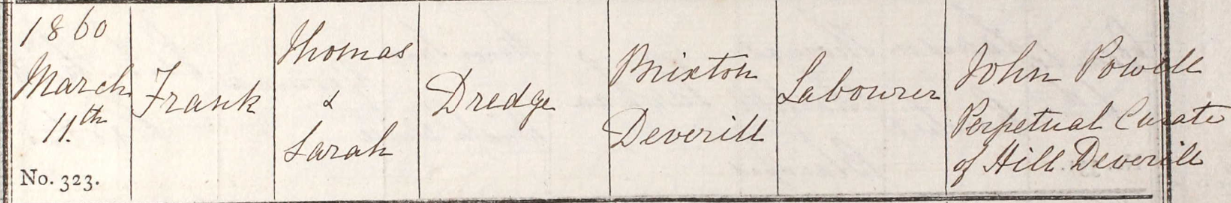 1860
March
11th
No. 323.
Frank
Thomas
&
Sarah
Dredge
Brixton
Deverill
Labourer
John Powell
Perpetual Curate
of Hill Deverill